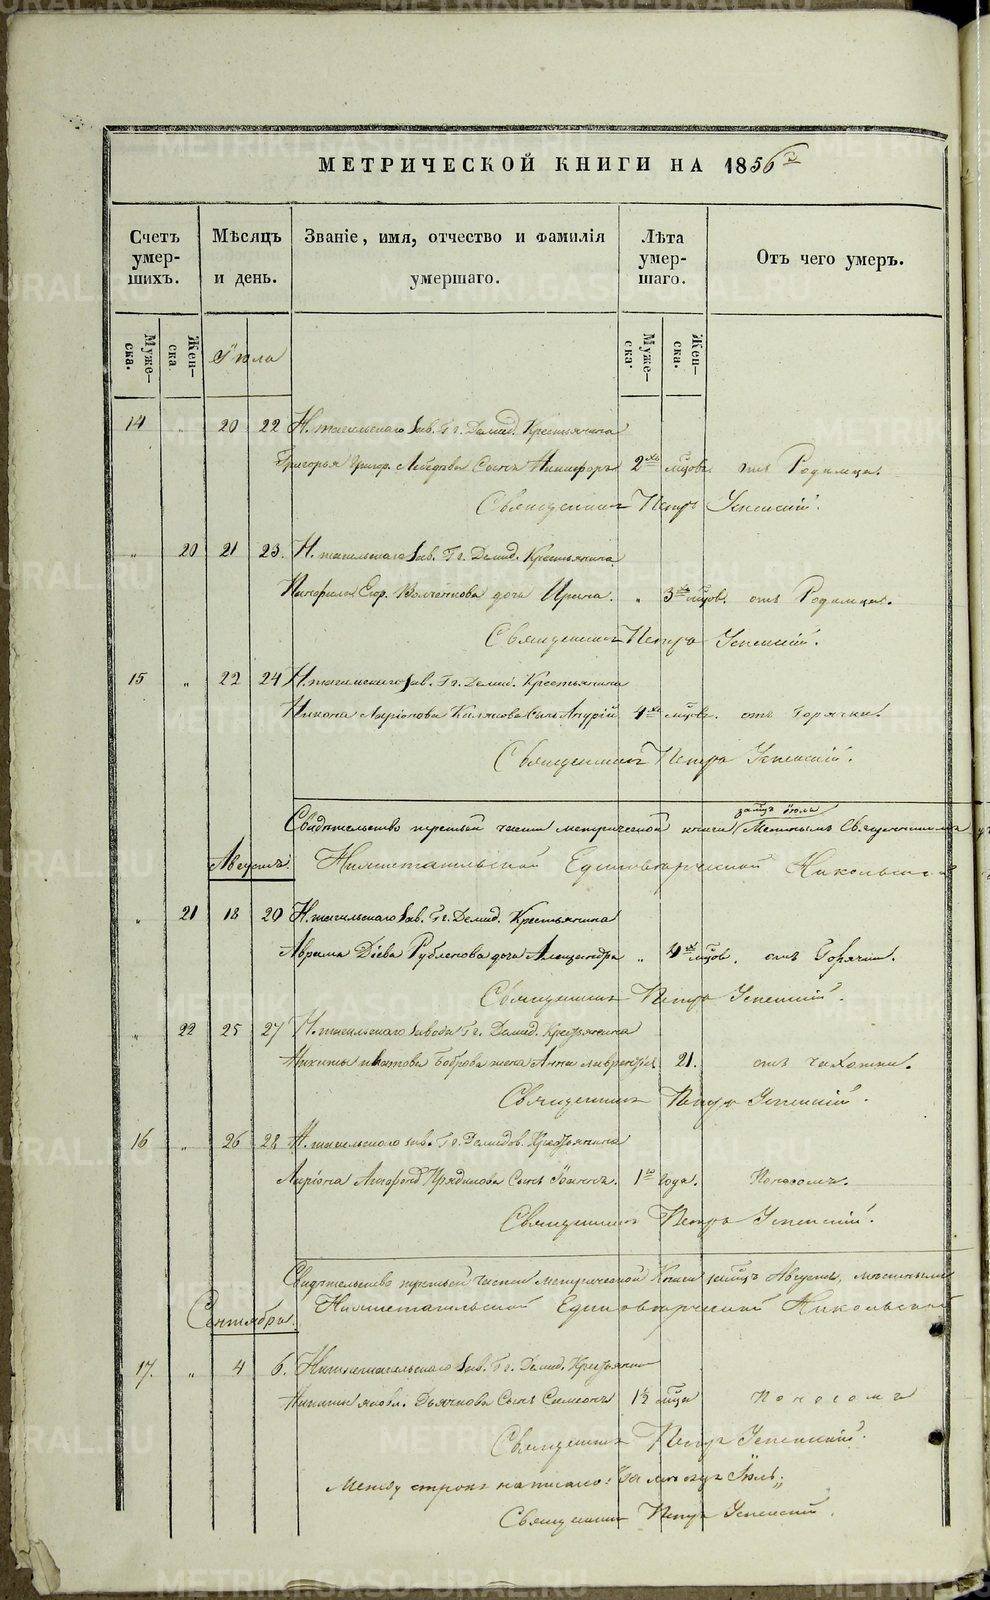 МЕТРИЧЕСКОЙ КНИГИ НА 1856й
Счетъ умер-шихъ.
Мѣсяцъ и день.
Званіе, имя, отчество и фамилія умершаго.
Лѣта умер-шаго.
Отъ чего умеръ.
Муже-ска.
Жен-ска
Муже-ска.
Жен-ска.
Іюля
14 „ 20 22 Н. тагильскаго Зав. Гг. Демид. Крестьянина
Григорья Григор. Лебедева Сынъ Никифоръ 2хъ мцовъ отъ Родимца.
Священникъ Петръ Успенскій.
„ 20 21 23. Н. тагильскаго Зав. Гг. Демид. Крестьянина
Егор. дочь Ирина. „ 3хъ мцов. отъ Родимца.
Священникъ Петръ Успенскій.
15 „ 22 24 Н. тагильскаго Зав. Гг. Демид. Крестьянина
Никона Ларіонова Сынъ 4хъ мцовъ. отъ Горячки.
Священникъ Петръ Успенскій.
за мцъ Іюль
Свидѣтельство третьей части метрической книги
Августъ. Нижнетагильской Единовѣрческой Никольской
„ 21 18 20 Н. тагильскаго Зав. Гг. Демид. Крестьянина
Аврама Діева Рубленова дочь Александра „ 4хъ мцов. отъ Горячки.
Священникъ Петръ Успенскій.
„ 22 25 27 Н. тагильскаго Завода Гг. Демид. Крестьянина
Никиты Боброва жена Анна 21. отъ чахотки.
Священникъ Петръ Успенскій.
16 „ 26 28 Н. тагильскаго зав. Гг. Демидов. Крестьянина
Ларіона Сынъ Іоаннъ. 1го года. Поносомъ.
Священникъ Петръ Успенскій.
Свидѣтельство третьей части метрической Книги за мцъ Августъ,
Сентябрь. Нижнетагильской Единовѣрческой Никольской
17. „ 4 6. Нижнетагильскаго Зав. Гг. Демид. Крестьянин
Никиты Яковл. Дьячкова Сынъ Симеонъ мца Поносомъ
Священникъ Петръ Успенскій.
Между строкъ написано: За месяцъ Іюль;
Священникъ Петръ Успенскій.
METRIKI.GASO-URAL.RU